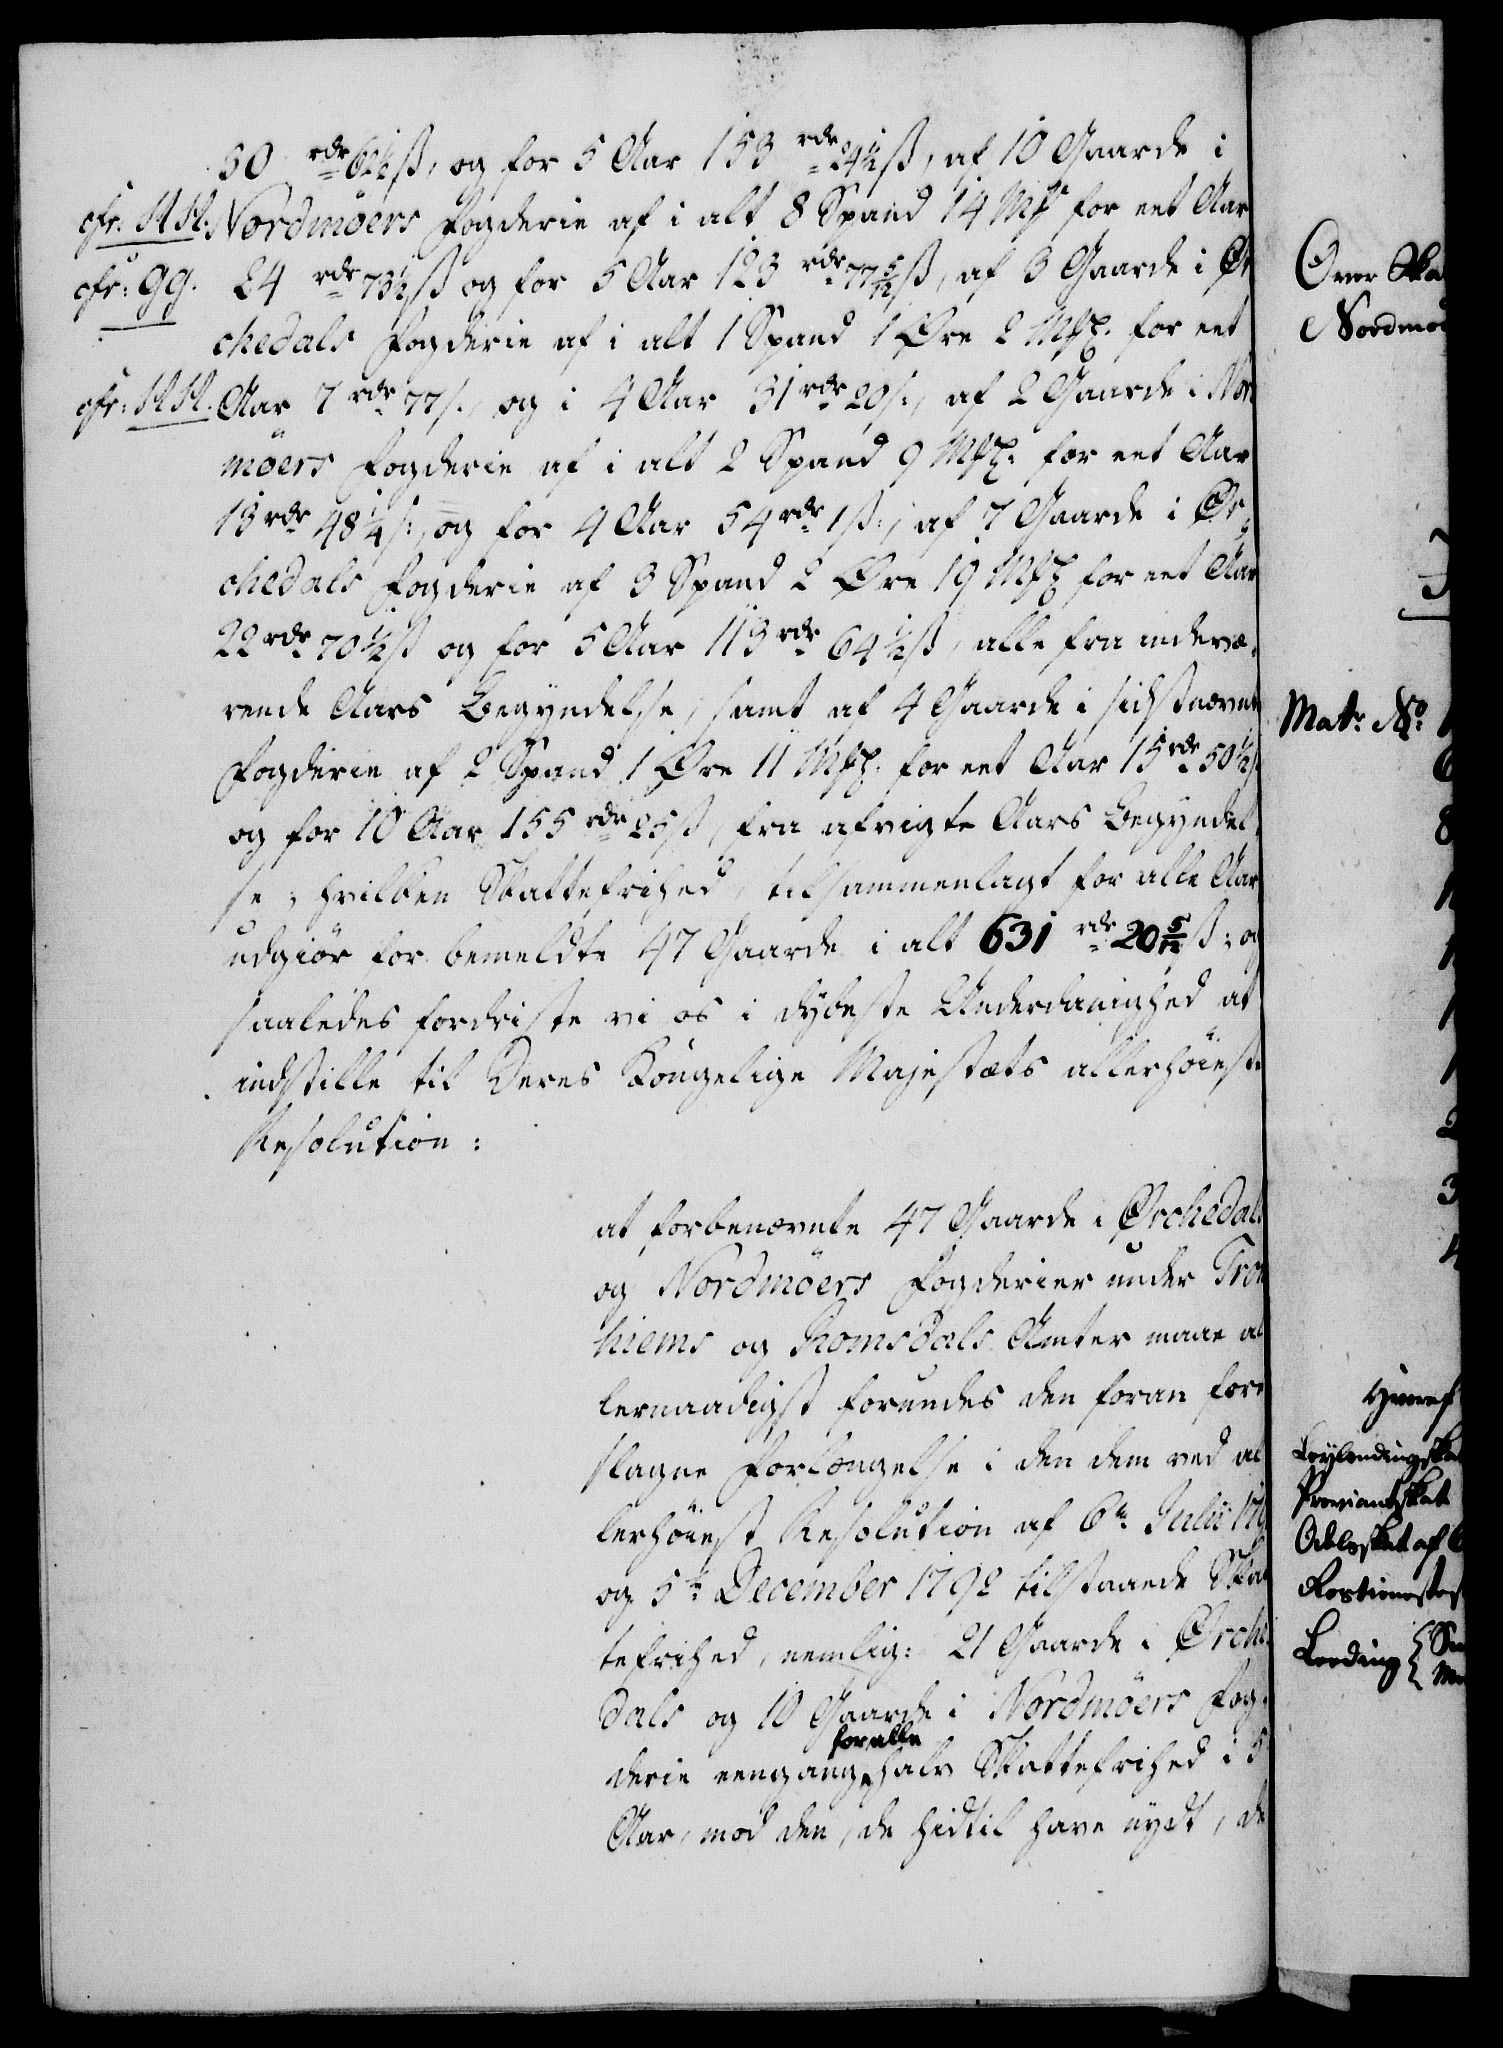 30 rdr 62½ ß, og for 5 Aar 153 rdr 24½ ß, af 10 Gaarde i
cfr: HH. Nordmöers Fogderie af i alt 8 Spand 14 Mk for eet Aar
cfr: gg. 24 rdr 73½ ß og for 5 Aar 123 rdr 77 5/12 ß, af 3 Gaarde i Ør
chedals Fogderie af i alt 1 Spand 1 Øre 2 Mk: for eet
cfr: HH. Aar 7 rdr 77 ß, og i 4 Aar 31 rdr 20 ß, af 2 Gaarde i Nor
möers Fogderie af i alt 2 Spand 9 Mk: for eet Aar
13 rdr 48¼ ß:, og for 4 Aar 54 rdr 1 ß:, af 7 Gaarde i Ør
chedals Fogderie af 3 Spand 2 Øre 19 Mk for eet Aar
22 rdr 70½ ß og for 5 Aar 113 rdr 64½ ß, alle fra indevæ
rende Aars Begyndelse, samt af 4 Gaarde i sidstnævnte
Fogderie af 2 Spand 1 Øre 11 Mk: for eet Aar 15 rdr 50½ ß
og for 10 Aar 155 rdr 25 ß, fra afvigte Aars Begyndel
se; hvilken Skattefrihed, tilsammenlagt for alle Aar
udgiør for bemeldte 47 Gaarde i alt 631 rdr 20 5/12 ß: og
saaledes fordriste vi os i dybeste Underdanighed at
indstille til Deres Kongelige Majestæts allerhöieste
Resolution:
at forbenævnte 47 Gaarde i Ørchedals
og Nordmöers Fogderier under Tron
hiems og Romsdals Amter maae al
lernaadigst forundes den foran fore
slagne Forlængelse i den dem ved al
lerhöiest Resolution af 6te Julii 179
og 5te December 1792 tilstaaede Skat
tefrihed, nemlig: 21 Gaarde i Ørche
dals og 10 Gaarde i Nordmöers Fog
for alle
derie eengang halv Skattefrihed i 5
Aar, mod den, de hidtil have nydt, de
Over Ska
Nordmöe
Matr No 1
6
8
1
1
1
1
2
3
4
Hvoraf
Leylendingska
Proviantskat
Odelsskat af 6
Rostieneste
Leeding { Sm